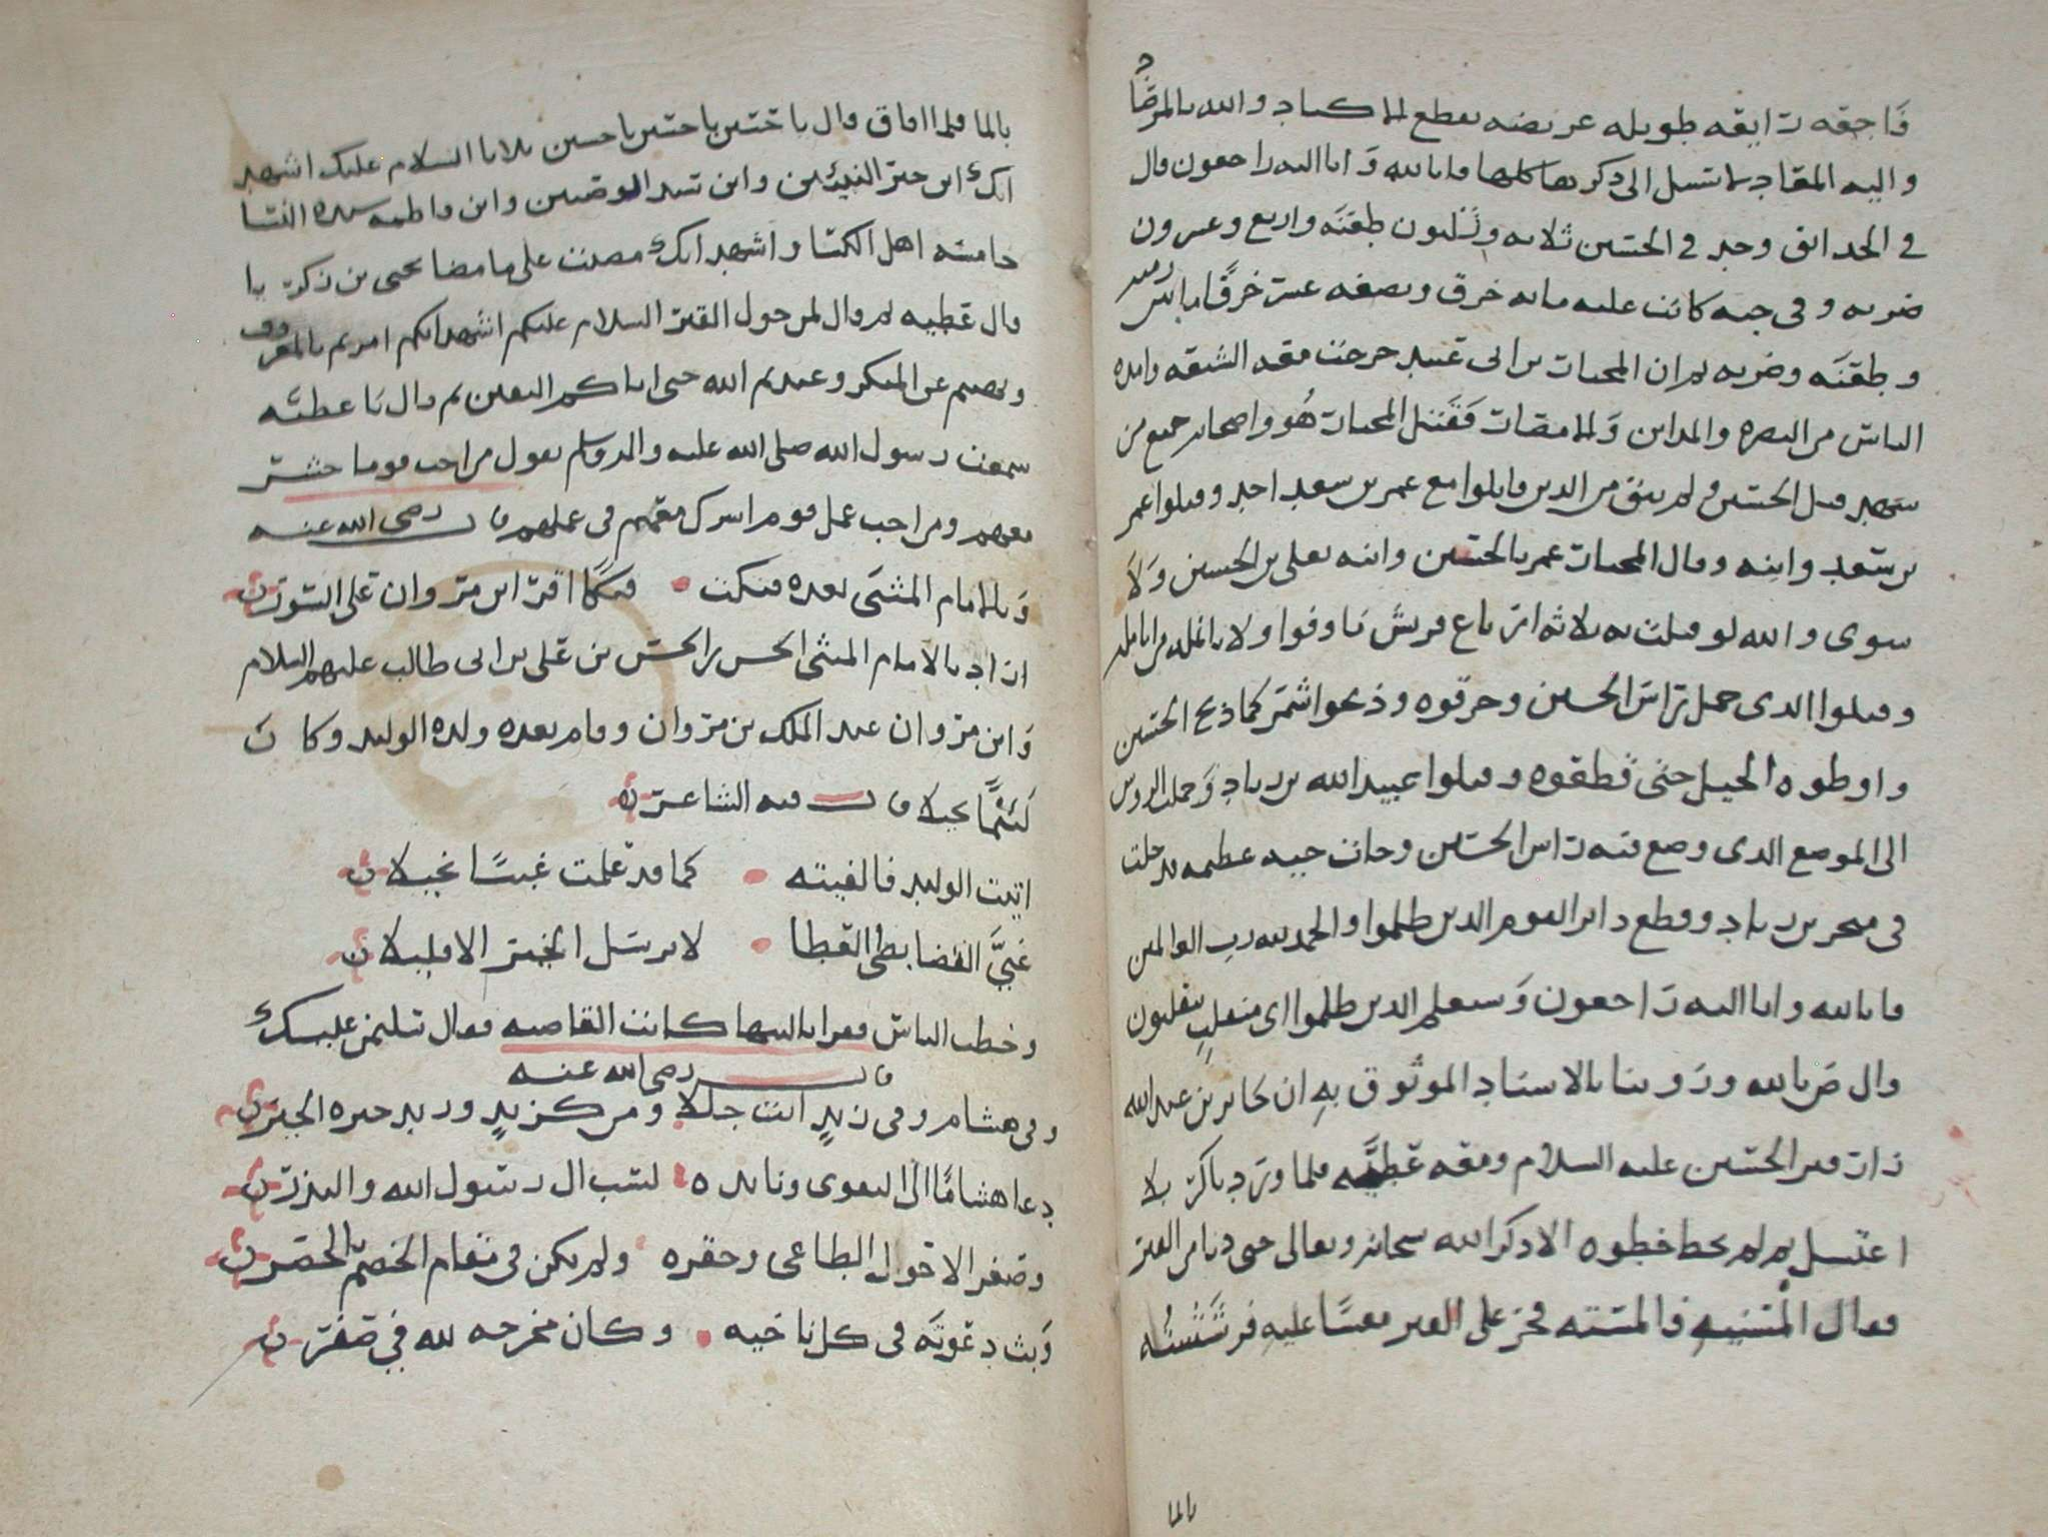 فاجعه رايعه طويله عريضه تقطع لها الاكباد والله بالمرصاد
واليه المعاد لا تسل الى ذكرها كلها فانا لله وانا اليه راجعون قال
في الحدائق وجد في الحسين ثلاثه وثلثون طعنه واربع وعشرون
ضربه وفي جبه كانت عليه مايه خرق وبضعه عشر خرقا ما بين رميه
وطعنه وضربه ثم ان المختار بن ابي عبيد خرجت معه الشيعه وايده
الناس من البصره والمداين فقتل المختار هو واصحابه جميع من
شهد قتل الحسين ولم يبق من الذين قاتلوا مع عمر بن سعد احد وقتلوا عمر
بن سعد وابنه وقال المختار عمر بالحسين وابنه بعلي بن الحسين ولا
سوى والله لو قتلت به ثلاثه ارباع قريش ما وفوا ولا بانمله من انامله
وقتلوا الذي حمل راس الحسين وحرقوه وذبحوا شمر كما ذبح الحسين
واوطوه الخيل حتى قطعوه وقتلوا عبيد الله بن زياد وحملت الروس
الى الموضع الذي وضع فيه راس الحسين وجات حيه عظيمه فدخلت
في منخر بن زياد وقطع دابر القوم الذين ظلموا والحمد لله رب العالمين
فانا لله وانا اليه راجعون وسيعلم الذين ظلموا اي منقلب ينقلبون
قال ض بالله وروينا بالاسناد الموثوق به ان جابر بن عبد الله
زار قبر الحسين عليه السلام ومعه عطيه فلما ورد باكربلا
اغتسل ثم لم يخط خطوه الا ذكر الله سبحانه وتعالى حتى دنا من القبر
فقال المسنيه فالمسته فخر على القبر مغشا عليه فرششته
بالما
بالما فلما افاق قال يا حسين يا حسين يا حسين ثلاثا السلام عليك اشهد
انك ابن خير النبيين وابن سيد الوصيين وابن فاطمه سيده النسا
خامسه اهل الكسا واشهد انك مضيت على ما مضا يحيى بن زكريا
قال عطيه ثم قال لمن حول القبر السلام عليكم اشهد انكم امرتم بالمعروف
ونهيتم عن المنكر وعبدتم الله حتى اتاكم اليقين ثم قال يا عطيه
سمعت رسول الله صلى الله عليه واله وسلم يقول من احب قوما حشر
معهم ومن احب عمل قوم اشرك معهم في عملهم قال رضي الله عنه
وبالامام المثنى بعده فتكت • فتكا اقر ابن مروان على السرر
اراد بالامام المثنى الحسن بن الحسن بن علي بن ابي طالب عليهم السلام
وابن مروان عبد الملك بن مروان وقام بعده ولده الوليد وكان
بخيلا قال فيه الشاعر
اتيت الوليد فالفيته • كما قد علمت غبيا بخيلا
غبي القضا بطي العطا • لا يرسل الخير الا قليلا
وخطب الناس فقرا يا ليتها كانت القاضيه فقال سليمن عليك
قال رضي الله عنه
وفي هشام وفي زيد اتت جللا ومن كزيد وزيد خيره الخير
دعا هشاما الى التقوى ونابذه • لسب ال رسول الله والنذر
وصغر الاحول الطاغي وحقره • ولم يكن في مقام الخصم بالحصر
وبث دعوته في كل ناحيه • وكان مخرجه لله في صفر